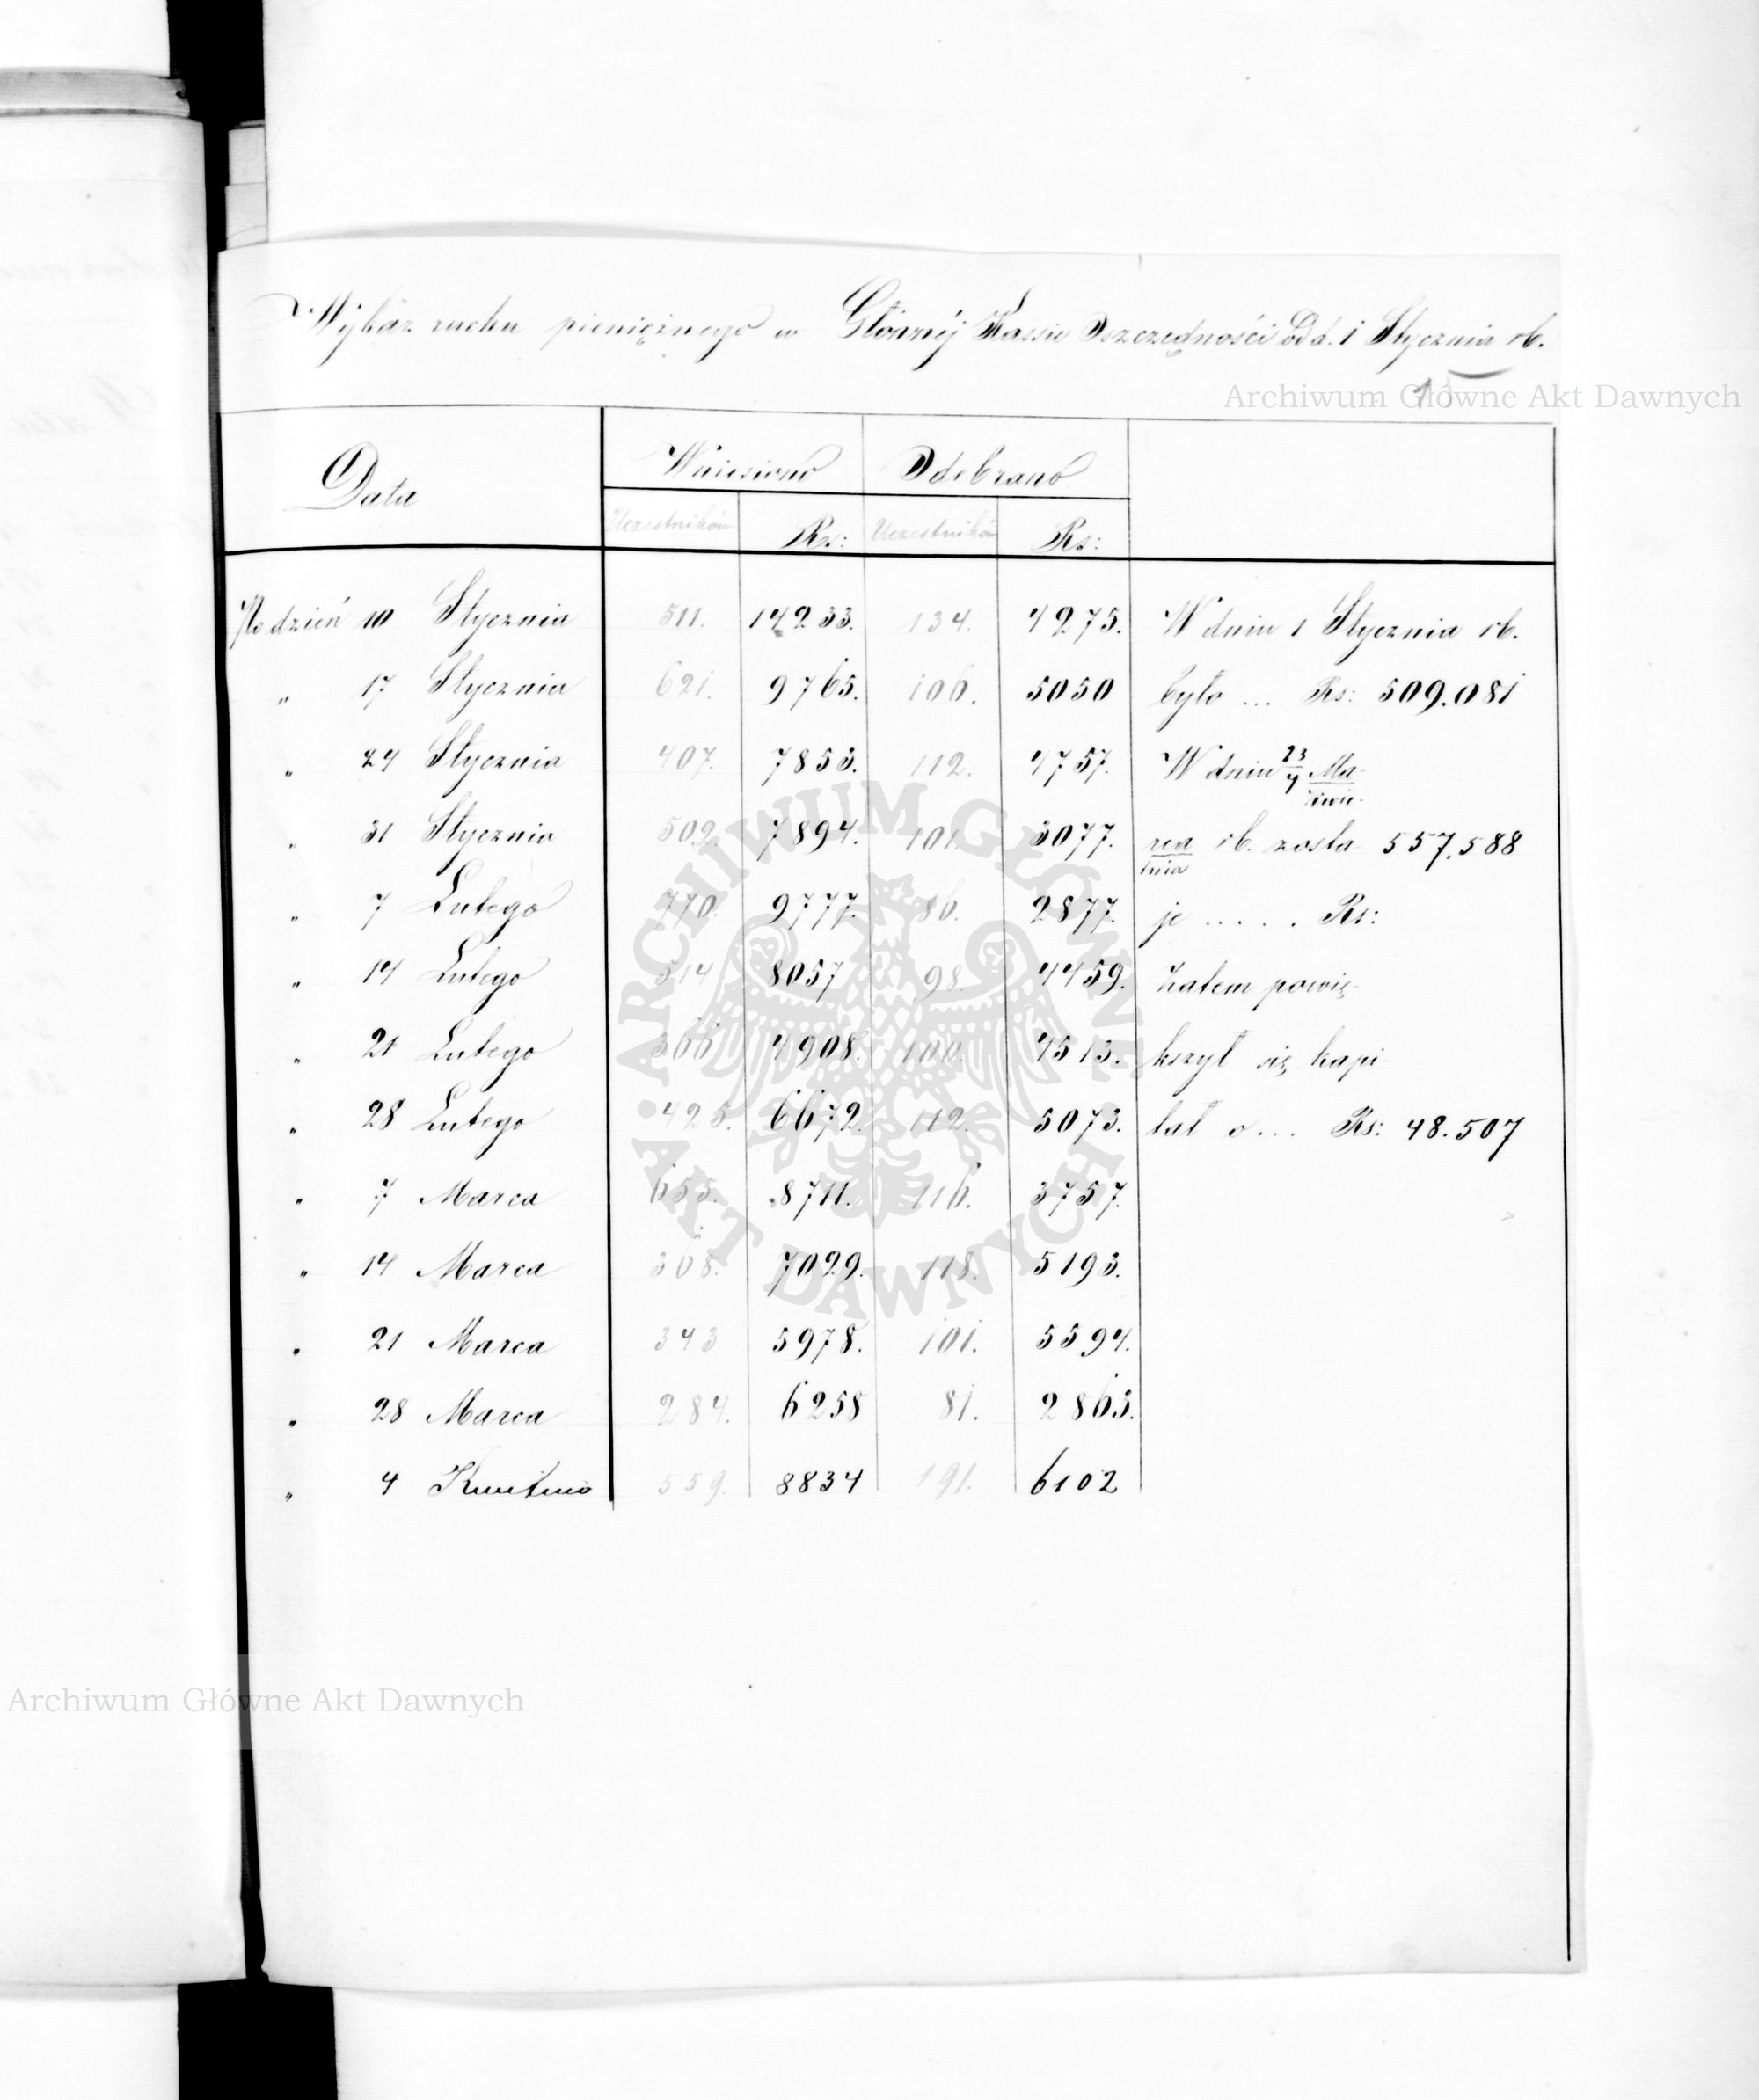 Wykaz ruchu pieniężnego w Głównéj Kassie Oszczędności od d. 1 Stycznia rb.
Archiwum Główne Akt Dawnych
Data Wniesiono Odebrano
Uczestników Rs: Uczestników Rs:
Po dzień 10 Stycznia 511. 14233. 134. 4275. W dniu 1 Stycznia rb.
" 17 Stycznia 621. 9765. 106. 5050 było ... Rs: 509.081
" 24 Stycznia 407. 7853. 112. 4757. W dniu 23/4 Ma-
kwie-
" 31 Stycznia 502. 7894. 101. 3077. rca rb. zosta 557.588
tnia
" 7 Lutego 770. 9777. 86. 2877. je ..... Rs:
" 14 Lutego 514 8057 98. 4459. Zatem powię-
" 21 Lutego 366 4908. 100. 4513. kszył się kapi
" 28 Lutego 425. 6672. 112. 5073. tał o... Rs: 48.507
" 7 Marca 655. 8711. 116. 3757.
" 14 Marca 368. 7029. 118. 5193.
" 21 Marca 343 5978. 101. 5594.
" 28 Marca 284. 6258 81. 2863.
" 4 Kwietnia 559. 8834 191. 6102
ARCHIWUM GŁÓWNE AKT DAWNYCH
Archiwum Główne Akt Dawnych